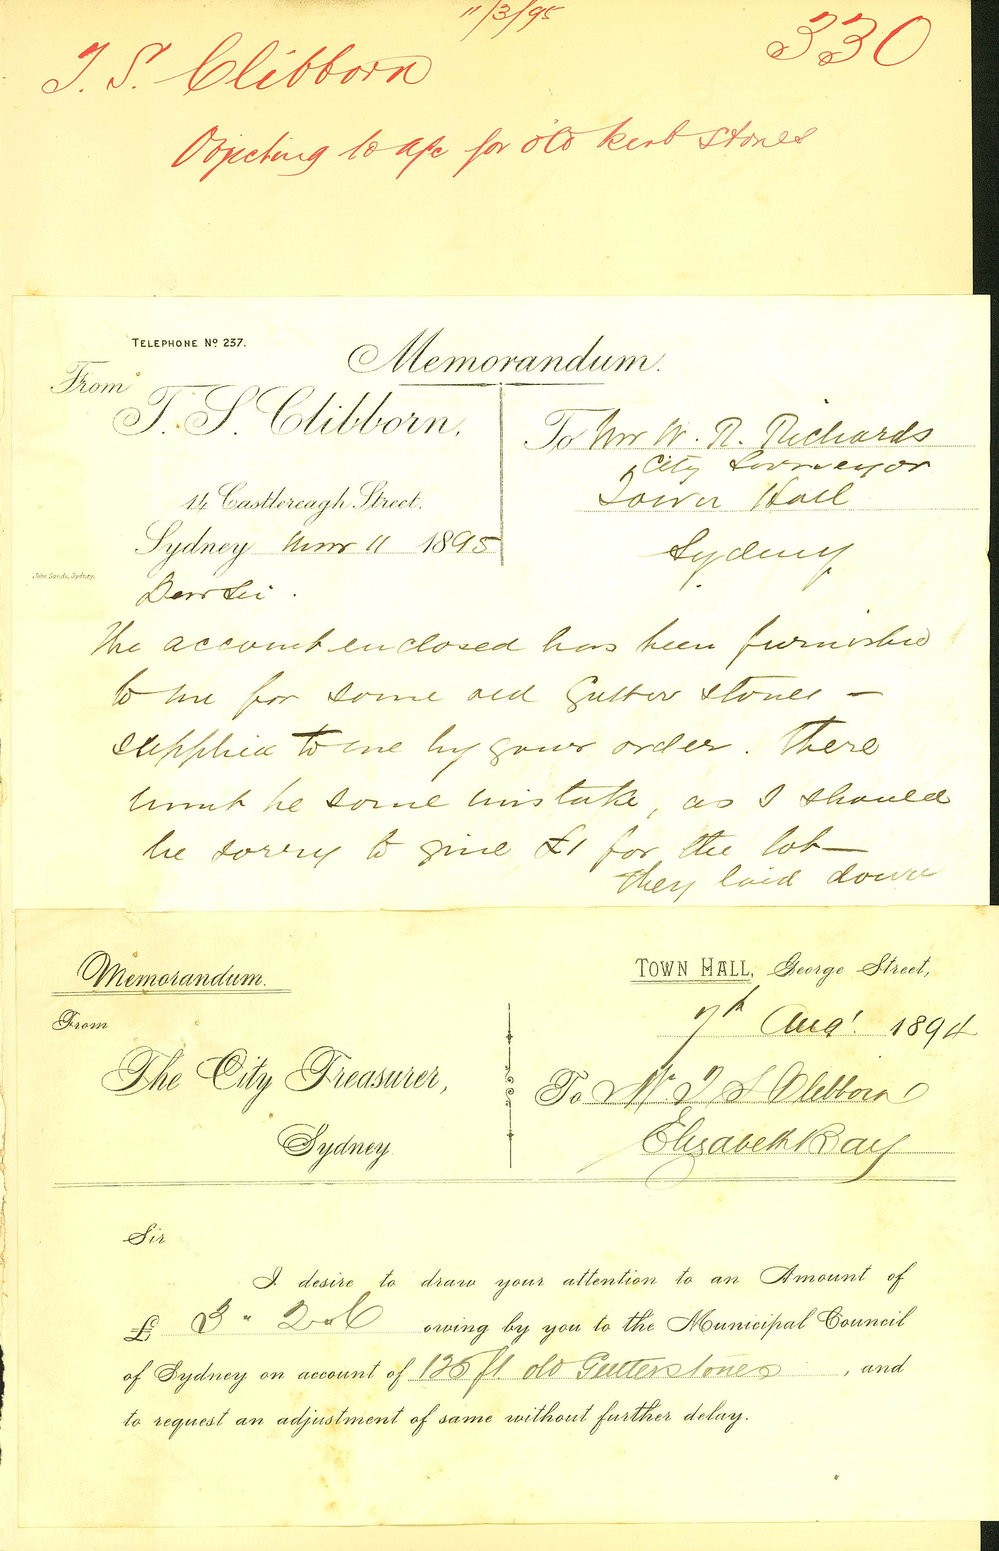 11/3/95
330
T. S. Clibborn
Objecting to a/c for old kerb stones
TELEPHONE Nº 237.
Memorandum.
From
T. S. Clibborn.
To Mr W. R. Richards
City Surveyor
Town Hall
Sydney
14 Castlereagh Street.
Sydney Mar 11 1895
John Sands, Sydney.
Dear Sir.
The account enclosed has been furnished
to me for some old Gutter stones —
supplied to me by your order. There
must be some mistake, as I should
be sorry to give £1 for the lot —
they laid down
Memorandum.
From
The City Treasurer,
Sydney
TOWN HALL, George Street,
7th Aug' 1894
To Mr T S Clibborn
Elizabeth Bay
Sir
I desire to draw your attention to an Amount of
£ 3 " 2 " 6 owing by you to the Municipal Council
of Sydney on account of 125 ft old Gutterstones, and
to request an adjustment of same without further delay.